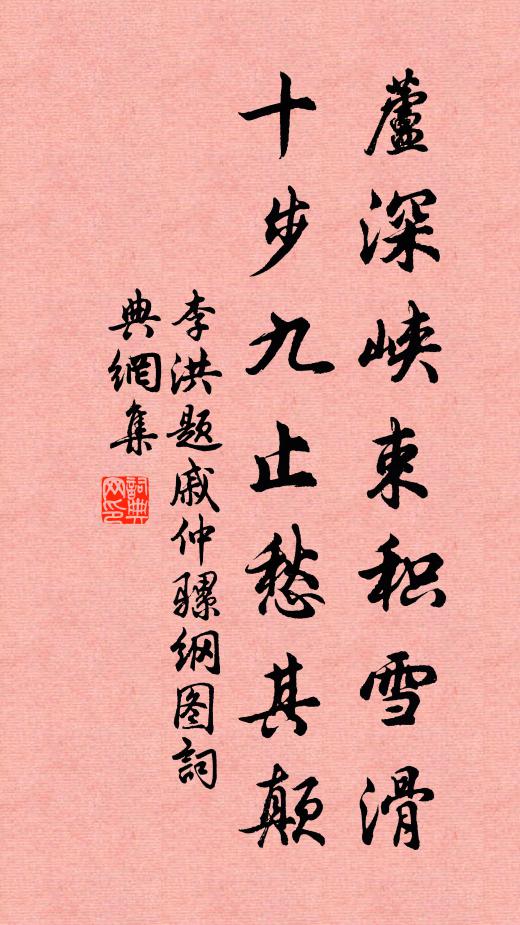 蘆深峡束积雪滑
十步九止愁其颠
李洪题戚仲骡纲图詞
典網集
詞典網印